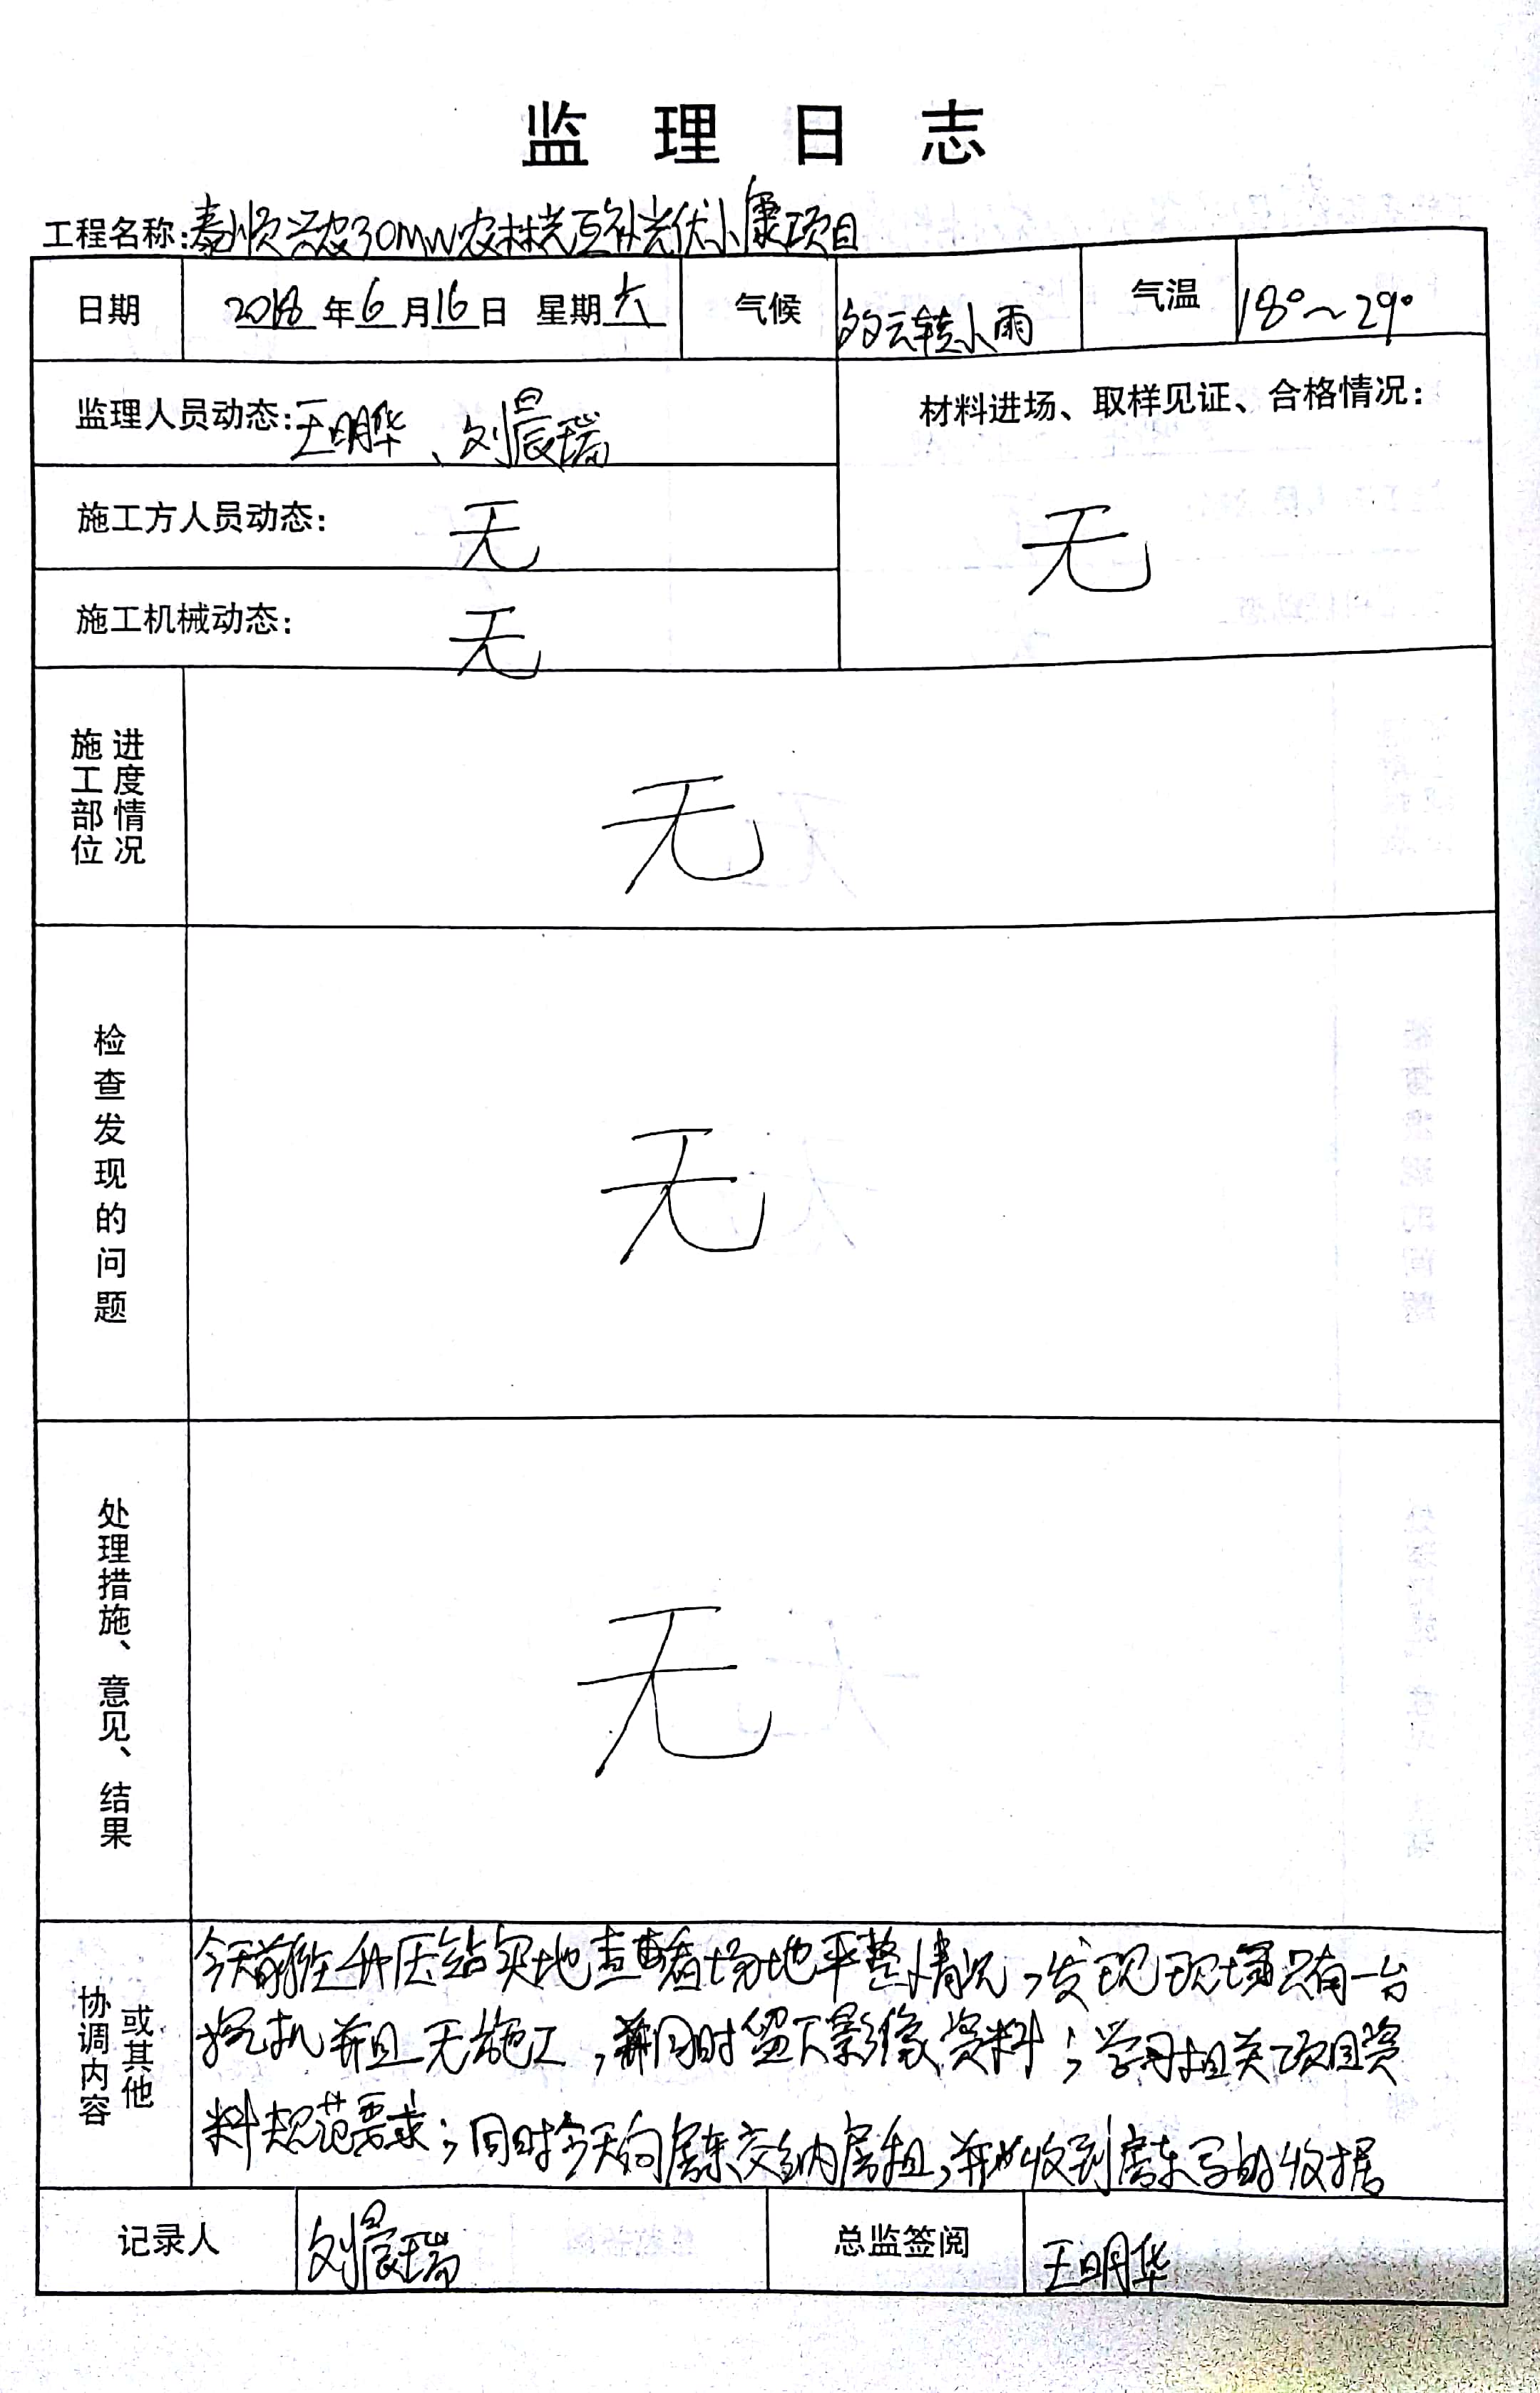 监理日志
工程名称:泰顺兴农30MW农林光互补光伏小康项目
日期 2018年6月16日 星期六 气候 多云转小雨 气温 18°~29°
监理人员动态:王明华、刘晨瑞 材料进场、取样见证、合格情况:
无
施工方人员动态: 无
施工机械动态: 无
施工部位
进度情况
无
检查发现的问题
无
处理措施、意见、结果
无
协调内容
或其他
今天前往升压站实地查看场地平整情况,发现现场只有一台
挖机并且无施工,并同时留下影像资料;学习相关项目资
料规范要求;同时今天向房东交纳房租,并收到房东写的收据
记录人 刘晨瑞 总监签阅 王明华